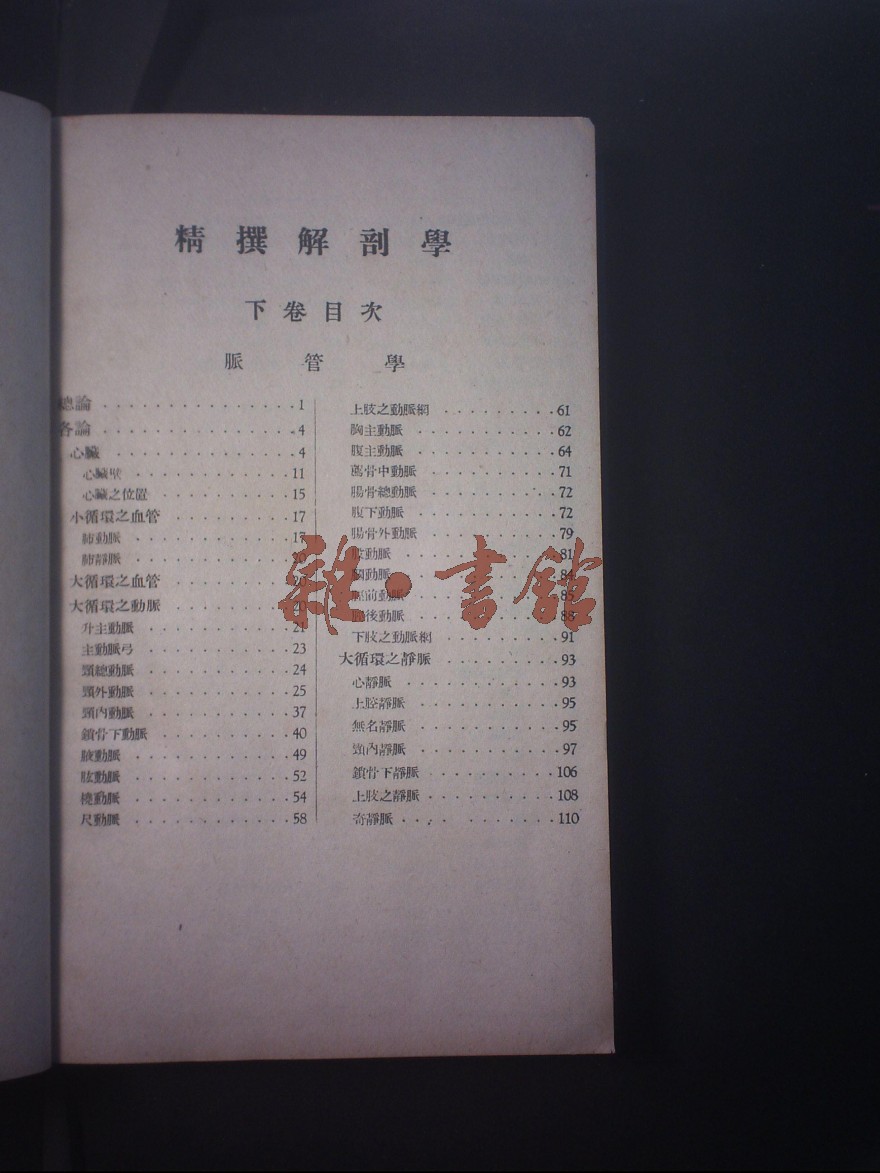 精撰解剖學
下卷目次
脈管學
總論 . . . . . . . . . . . . . . . 1
各論 . . . . . . . . . . . . . . . 4
心臟 . . . . . . . . . . . . . . . 4
心臟壁 . . . . . . . . . . . . 11
心臟之位置 . . . . . . . . . . 15
小循環之血管 . . . . . . . . . 17
肺動脈 . . . . . . . . . . . . 17
肺靜脈 . . . . . . . . . . . . 20
大循環之血管 . . . . . . . . . 20
大循環之動脈 . . . . . . . . . 20
升主動脈 . . . . . . . . . . . 21
主動脈弓 . . . . . . . . . . . 23
頸總動脈 . . . . . . . . . . . 24
頸外動脈 . . . . . . . . . . . 25
頸內動脈 . . . . . . . . . . . 37
鎖骨下動脈 . . . . . . . . . . 40
腋動脈 . . . . . . . . . . . . 49
肱動脈 . . . . . . . . . . . . 52
橈動脈 . . . . . . . . . . . . 54
尺動脈 . . . . . . . . . . . . 58
上肢之動脈網 . . . . . . . . . 61
胸主動脈 . . . . . . . . . . . 62
腹主動脈 . . . . . . . . . . . 64
薦骨中動脈 . . . . . . . . . . 71
腸骨總動脈 . . . . . . . . . . 72
腹下動脈 . . . . . . . . . . . 72
腸骨外動脈 . . . . . . . . . . 79
股動脈 . . . . . . . . . . . . 81
膕動脈 . . . . . . . . . . . . 84
脛前動脈 . . . . . . . . . . . 85
脛後動脈 . . . . . . . . . . . 88
下肢之動脈網 . . . . . . . . . 91
大循環之靜脈 . . . . . . . . . 93
心靜脈 . . . . . . . . . . . . 93
上腔靜脈 . . . . . . . . . . . 95
無名靜脈 . . . . . . . . . . . 95
頸內靜脈 . . . . . . . . . . . 97
鎖骨下靜脈 . . . . . . . . . . 106
上肢之靜脈 . . . . . . . . . . 108
奇靜脈 . . . . . . . . . . . . 110
雜·書館